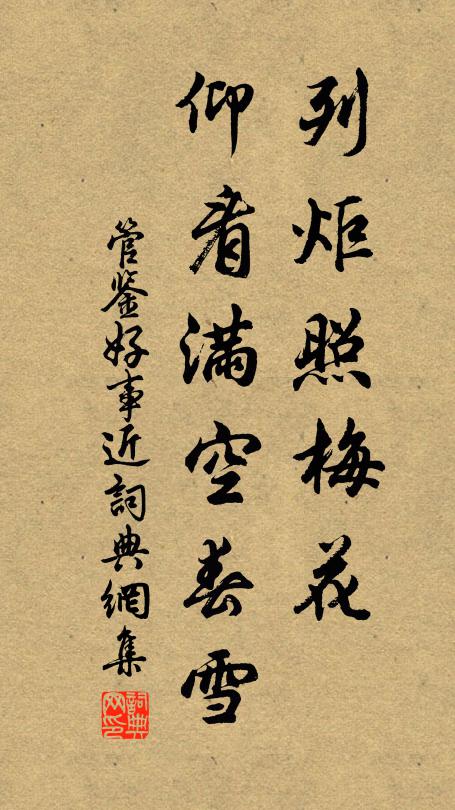 列炬照梅花
仰看满空春雪
管鉴好事近詞典網集
詞典网印